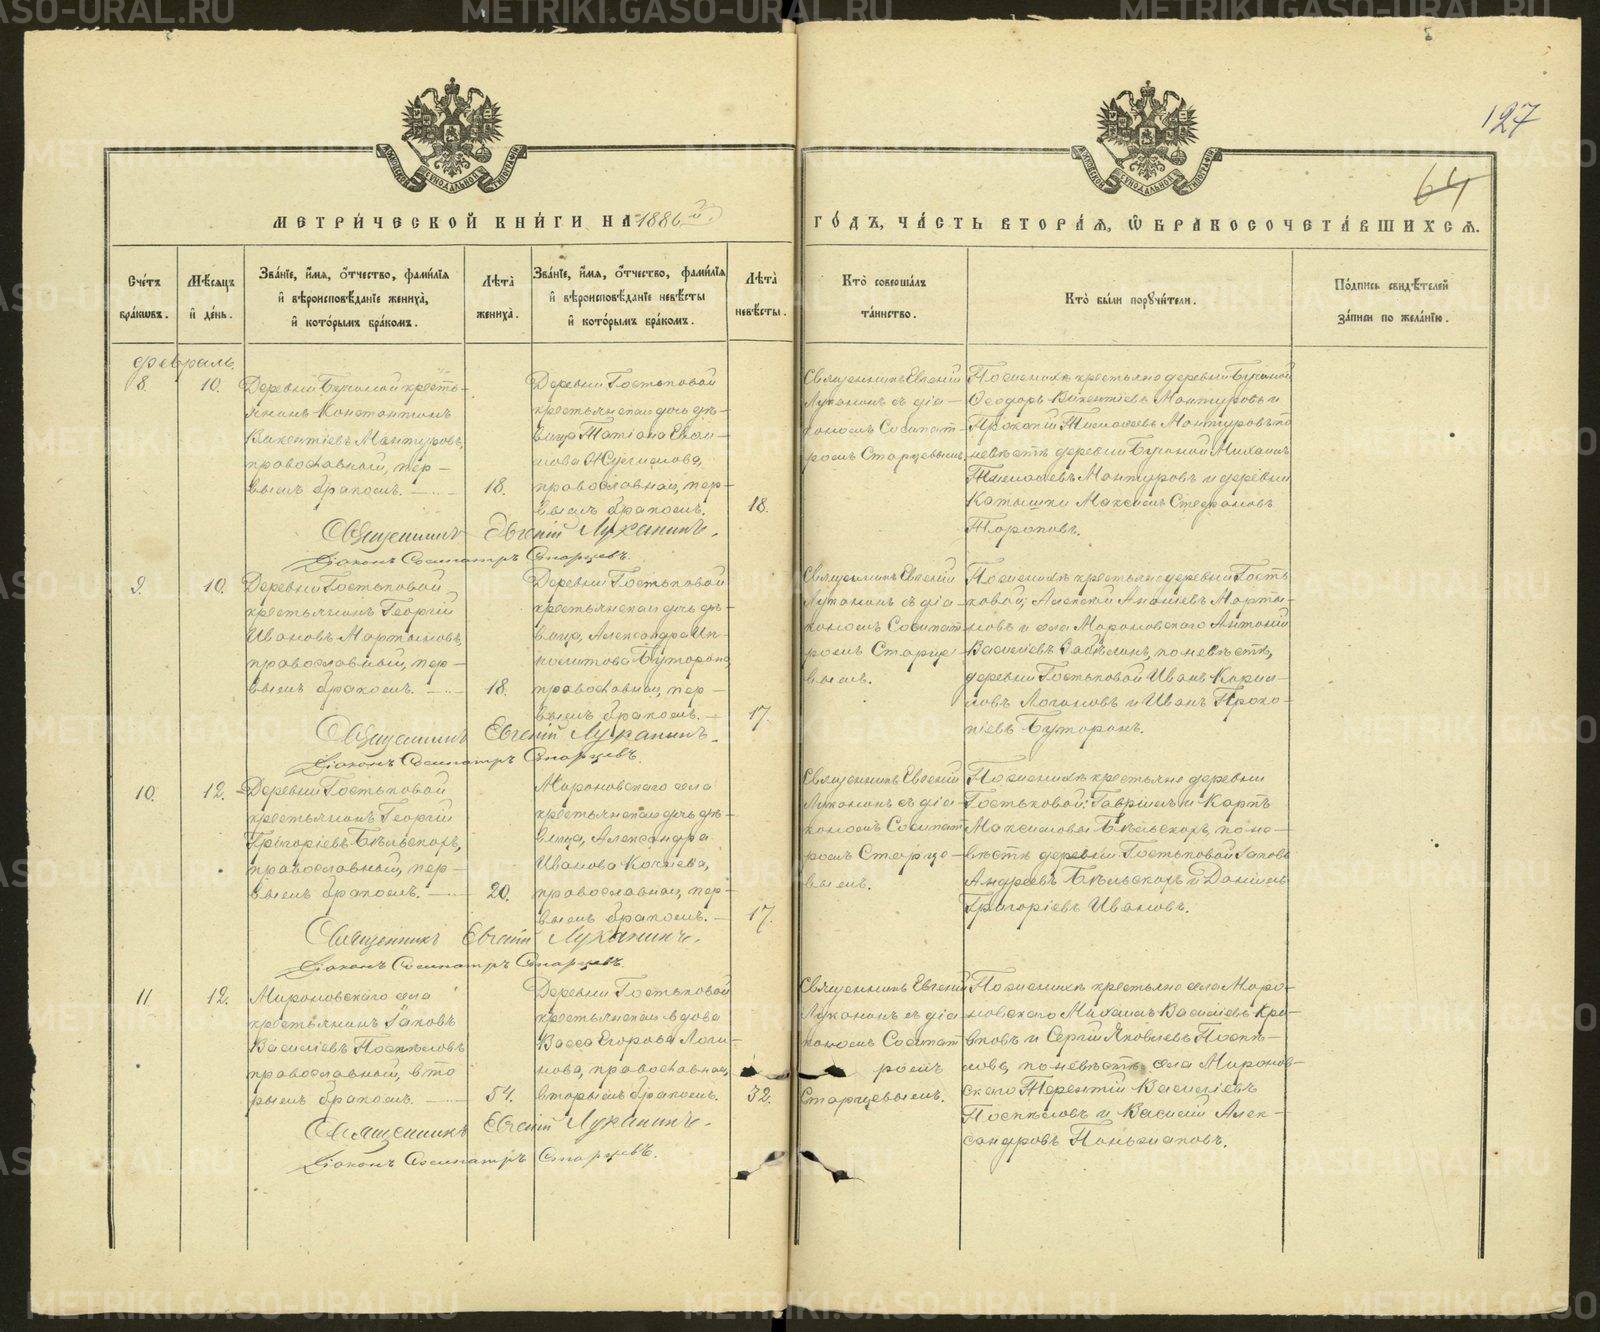 127
64
МЕТРИ́ЧЕСКОЙ КНИ́ГИ НА 1886й
ГО́ДЪ, ЧА́СТЬ ВТОРА́Я, Ѡ БРАКОСОЧЕТА́ВШИХСЯ.
Сче́тъ бра́ковъ.
Мѣ́сяцъ и де́нь.
Зва́нїе, и́мя, о́тчество, фами́лїя и вѣроисповѣ́данїе жениха̀, и кото́рымъ бра́комъ.
Лѣ́та жениха̀.
Зва́нїе, и́мя, о́тчество, фами́лїя и вѣроисповѣ́данїе невѣ́сты и кото́рымъ бра́комъ.
Лѣ́та невѣ́сты.
Кто̀ соверша́лъ та́инство.
Кто̀ бы́ли поручи́тели.
По́дпись свидѣ́телей за́писи по жела́нїю.
Февраль.
8.
10.
Деревни Бучиной кресть-
янинъ Константинъ
Викентіевъ Мантуровъ,
православный, пер-
вымъ бракомъ.
18.
Деревни Гостьковой
крестьянская дочь дѣ-
вица Татіана
православная, пер-
вымъ бракомъ.
18.
Священникъ Евгеній
Луканинъ съ діа-
кономъ Сосипат-
ромъ Старцевымъ.
По женихѣ крестьяне деревни Бучиной
Ѳеодоръ Викентіевъ Мантуровъ и
Прокопій Тимофеевъ Мантуровъ по
невѣстѣ деревни Бучиной Михаилъ
Тимофеевъ Мантуровъ и деревни
Катышки Максимъ Стефановъ
Тороповъ.
Священникъ Евгеній Луканинъ.
Діаконъ Сосипатръ Старцевъ.
9.
10.
Деревни Гостьковой
крестьянинъ Георгій
Ивановъ Мартыновъ,
православный, пер-
вымъ бракомъ.
18.
Деревни Гостьковой
крестьянская дочь дѣ-
вица, Александра Ип-
политова Буторина,
православная, пер-
вымъ бракомъ.
17.
Священникъ Евгеній
Луканинъ съ діа-
кономъ Сосипат-
ромъ Старце-
вымъ.
По женихѣ крестьяне деревни Гость-
ковой; Алексѣй Ананіевъ Марты-
новъ и села Мироновскаго Антоній
Василіевъ Забѣлинъ, по невѣстѣ,
деревни Гостьковой Иванъ Кирил-
ловъ Логиновъ и Иванъ Проко-
піевъ Буторинъ.
Священникъ Евгеній Луканинъ.
Діаконъ Сосипатръ Старцевъ.
10.
12.
Деревни Гостьковой
крестьянинъ Георгій
Григоріевъ Бѣльскохъ,
православный, пер-
вымъ бракомъ.
20.
Мироновскаго села
крестьянская дочь дѣ-
вица, Александра
Иванова Кочнева,
православная, пер-
вымъ бракомъ.
17.
Священникъ Евгеній
Луканинъ съ діа-
кономъ Сосипат-
ромъ Старце-
вымъ.
По женихѣ крестьяне деревни
Гостьковой: Гавріилъ и Карпъ
Максимовы Бѣльскохъ, по не-
вѣстѣ деревни Гостьковой Іаковъ
Андреевъ Бѣльскохъ и Даніилъ
Григоріевъ Ивановъ.
Священникъ Евгеній Луканинъ.
Діаконъ Сосипатръ Старцевъ.
11.
12.
Мироновскаго села
крестьянинъ Іаковъ
Василіевъ Поспѣловъ
православный, вто
рымъ бракомъ.
54.
Деревни Гостьковой
крестьянская вдова
Васса Егорова Логи-
нова, православная,
вторымъ бракомъ.
32.
Священникъ Евгеній
Луканинъ съ діа-
кономъ Сосипат
ромъ
Старцевымъ.
По женихѣ крестьяне села Миро-
новскаго Михаилъ Василіевъ Кри-
вковъ и Сергій Яковлевъ Поспѣ-
ловъ, по невѣстѣ села Миронов-
скаго Терентій Василіевъ
Поспѣловъ и Василій Алек-
сандровъ Паньшаковъ.
Священникъ Евгеній Луканинъ.
Діаконъ Сосипатръ Старцевъ.
METRIKI.GASO-URAL.RU